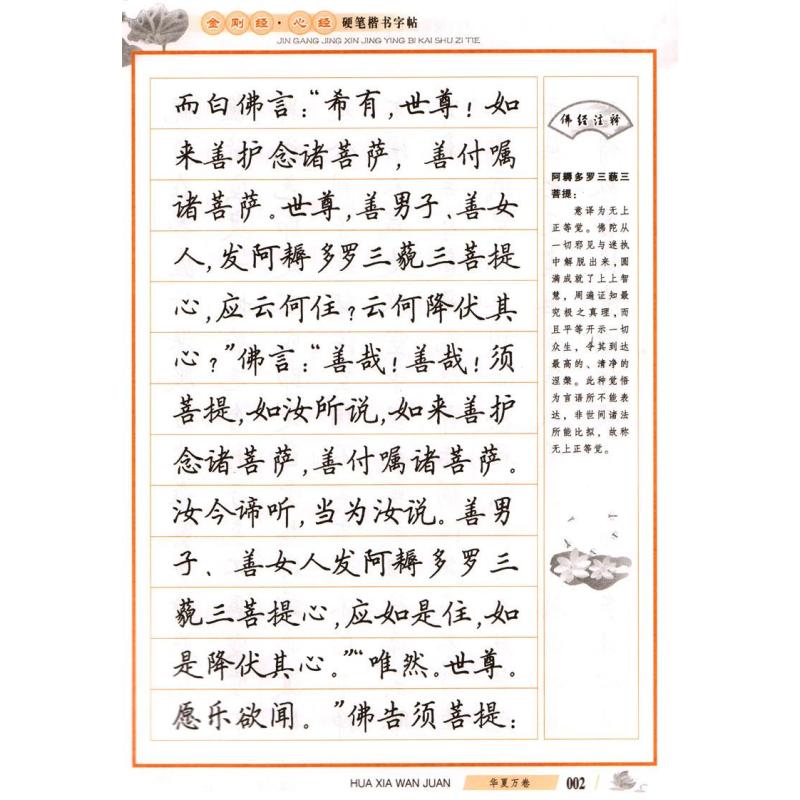 金刚经·心经 硬笔楷书字帖
JIN GANG JING XIN JING YING BI KAI SHU ZI TIE
而白佛言：“希有，世尊！如
来善护念诸菩萨，善付嘱
诸菩萨。世尊，善男子、善女
人，发阿耨多罗三藐三菩提
心，应云何住？云何降伏其
心？”佛言：“善哉！善哉！须
菩提，如汝所说，如来善护
念诸菩萨，善付嘱诸菩萨。
汝今谛听，当为汝说。善男
子、善女人发阿耨多罗三
藐三菩提心，应如是住，如
是降伏其心。”“唯然。世尊。
愿乐欲闻。”佛告须菩提：
佛经注释
阿耨多罗三藐三
菩提：
意译为无上
正等觉。佛陀从
一切邪见与迷执
中解脱出来，圆
满成就了上上智
慧，周遍证知最
究极之真理，而
且平等开示一切
众生，令其到达
最高的、清净的
涅槃。此种觉悟
为言语所不能表
达，非世间诸法
所能比拟，故称
无上正等觉。
HUA XIA WAN JUAN
华夏万卷
002